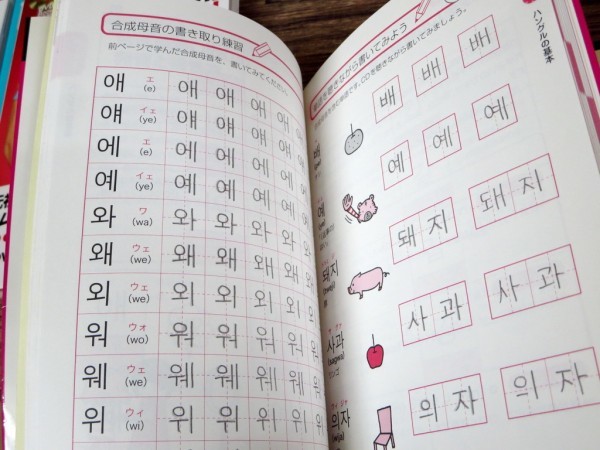 合成母音の書き取り練習
前ページで学んだ合成母音を、書いてみてください。
애 エ (e) 애 애 애 애
얘 イェ (ye) 얘 얘 얘 얘
에 エ (e) 에 에 에 에
예 イェ (ye) 예 예 예 예
와 ワ (wa) 와 와 와 와
왜 ウェ (we) 왜 왜 왜 왜
외 ウェ (we) 외 외 외 외
워 ウォ (wo) 워 워 워 워
웨 ウェ (we) 웨 웨 웨 웨
위 ウィ (wi) 위 위 위 위
ハングルの基本
きながら書いてみよう
きながら書いてみましょう。
배 배 배 배
예 예 예 예
돼지 돼지 돼지
사과 (sagwa) 사과 사과
의자 의자 의자